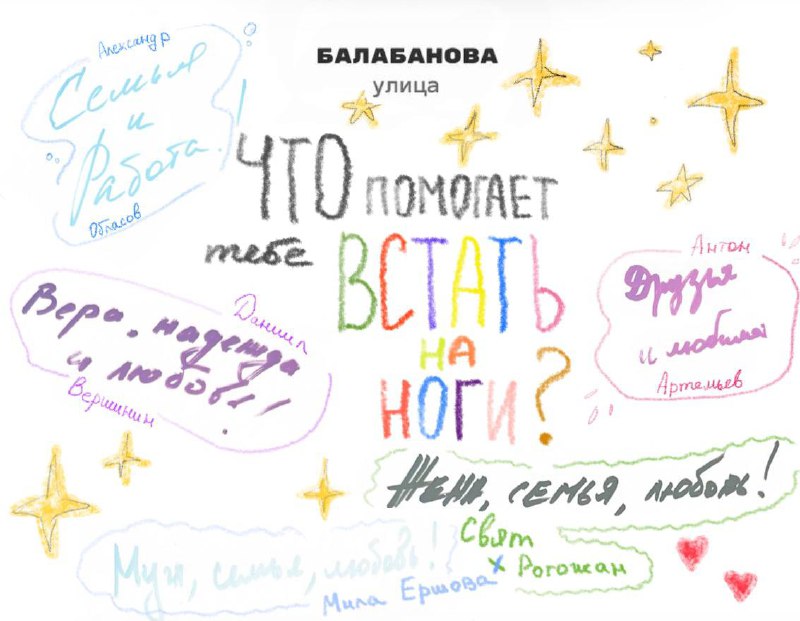 БАЛАБАНОВА
улица
ЧТО ПОМОГАЕТ
тебе ВСТАТЬ
НА
НОГИ?
Александр
Семья
и
Работа!
Обласов
Даниил
Вера, надежда
и любовь!
Вершинин
Антон
Друзья
и любимая
Артемьев
Жена, семья, любовь!
Свят
х Рогожан
Муж, семья, любовь!
Мила Ершова